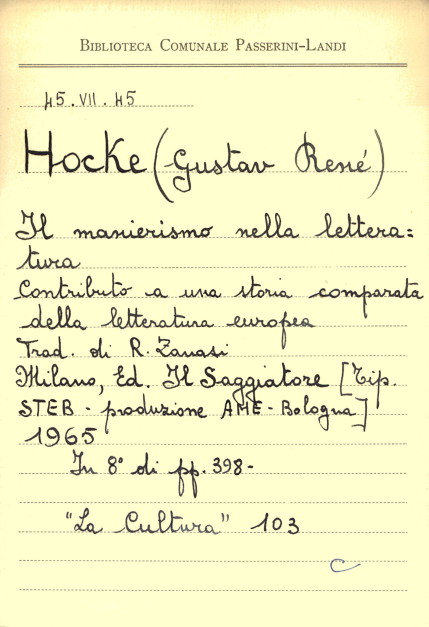 BIBLIOTECA COMUNALE PASSERINI-LANDI
45.VII.45
Hocke (Gustav René)
Il manierismo nella lettera=
tura
Contributo a una storia comparata
della letteratura europea
Trad. di R. Zanasi
Milano, Ed. Il Saggiatore [Tip.
STEB - produzione AME - Bologna]
1965
In 8° di pp. 398-
"La Cultura" 103
C